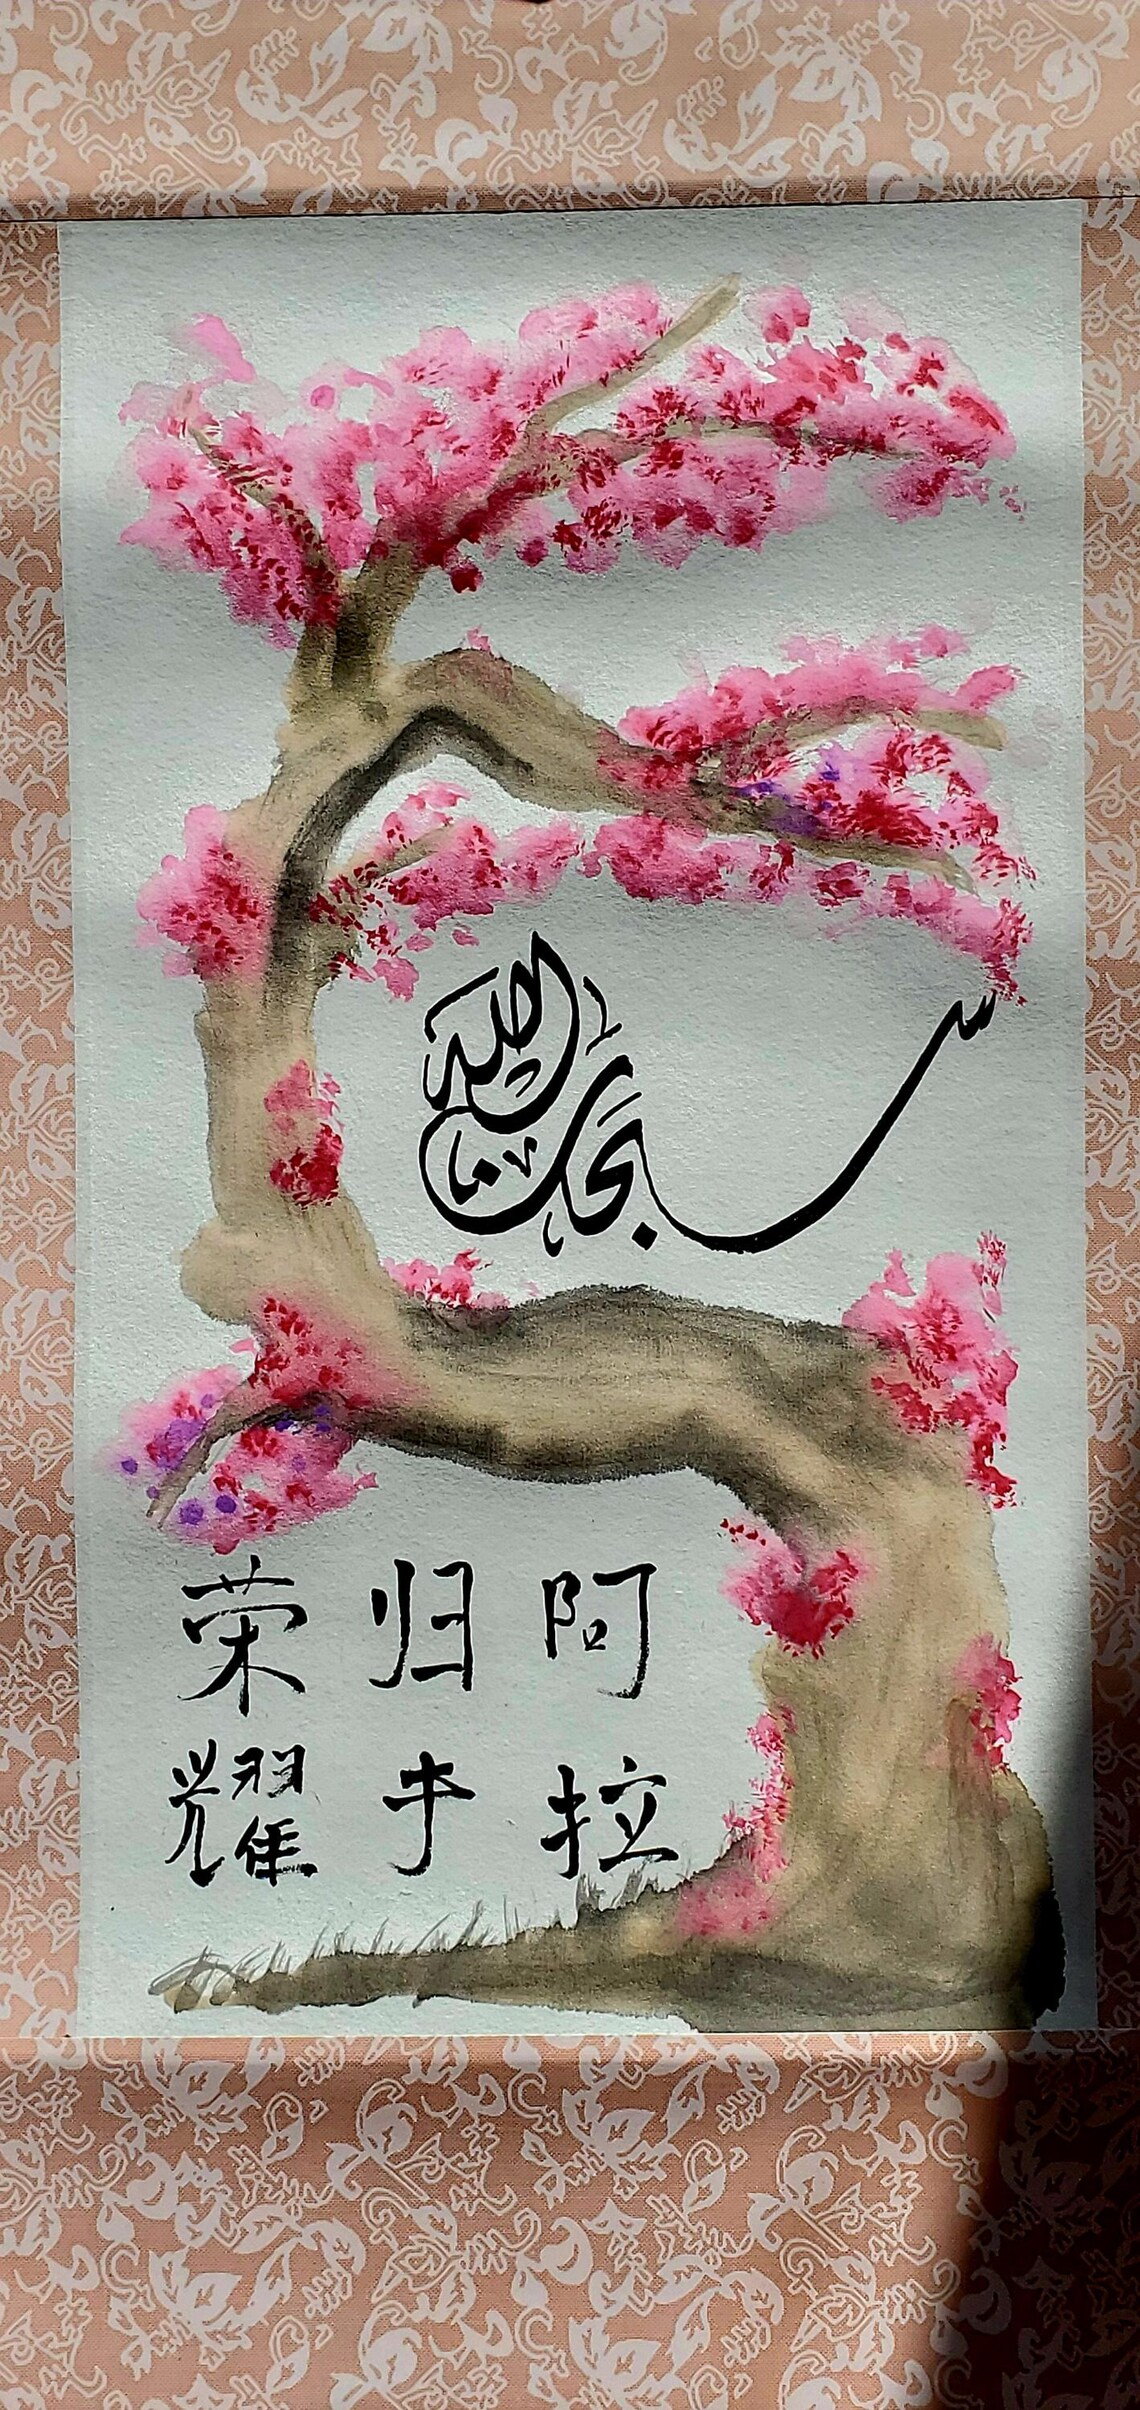 سبحان الله
荣耀
归于
阿拉